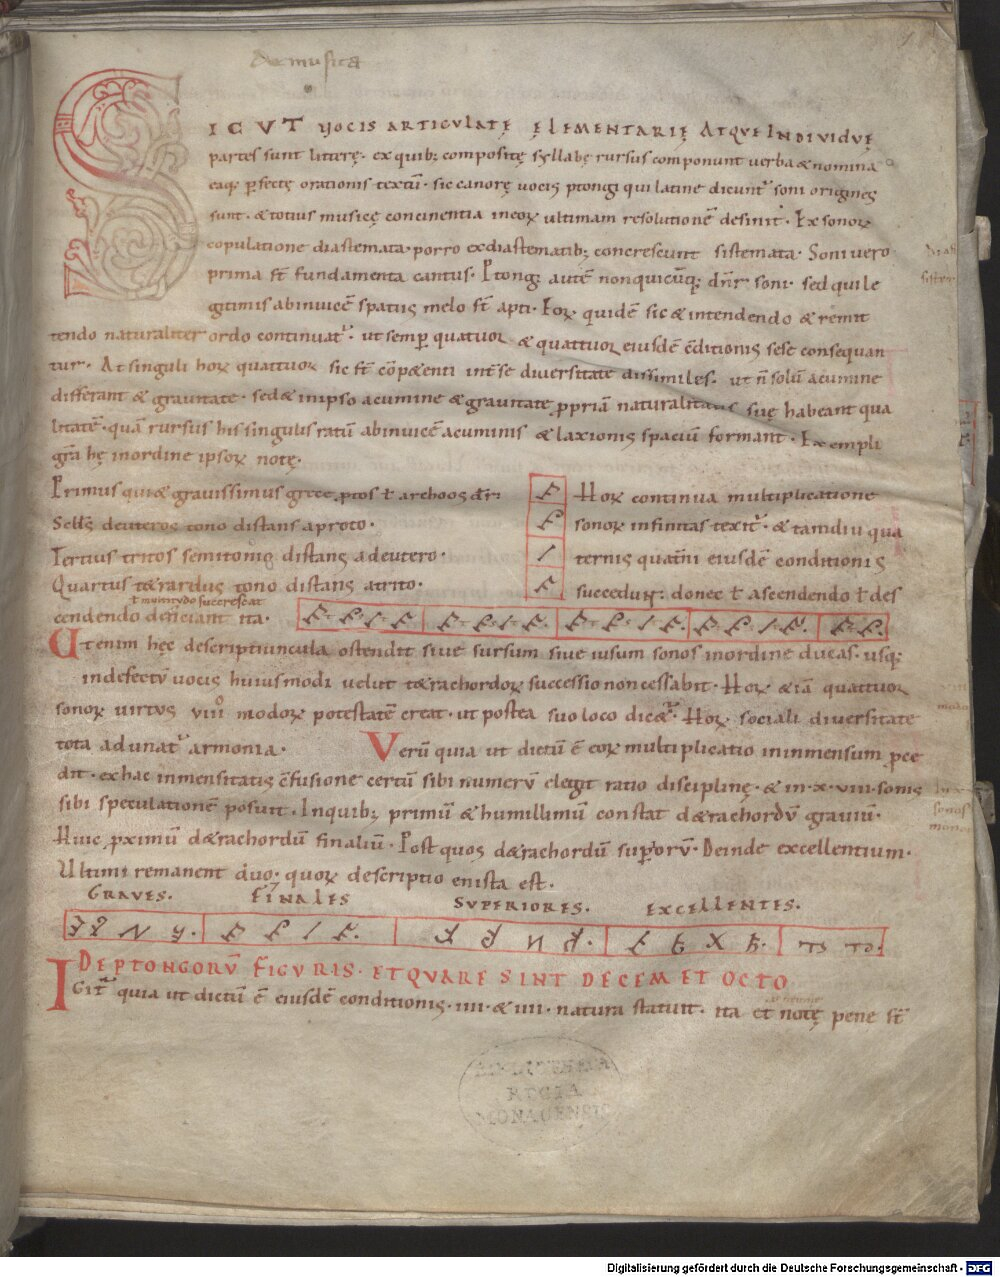 De musica
SICVT VOCIS ARTICVLATĘ ELEMENTARIĘ ATQVE INDIVIDVĘ
partes sunt litterę. ex quib; compositę syllabę rursus componunt verba & nomina
eaq; pfectę orationis textū. sic canorę vocis ptongi qui latine dicunt̄ soni origines
sunt. & totius musicę concinentia in eoꝝ ultimam resolutionē desinit. Ex sonoꝝ
copulatione diastemata. porro ex diastematib; concrescunt sistemata. Soni vero
prima st̄ fundamenta cantus. Ptongi autē non quicūq; dn̄r soni. sed qui le
gitimis abinuicē spatiis melo st̄ apti. Eoꝝ quidē sic & intendendo & remit
tendo naturaliter ordo continuat̄. ut semꝑ quatuor & quattuor eiusdē ɔditionis sese consequan
tur. At singuli horꝝ quattuor sic st̄ cōpetenti int̄ se diversitate dissimiles. ut n̄ solū acumine
differant & gravitate. sed & in ipso acumine & gravitate ꝓpriā naturalitatis suę habeant qua
litatē. quā rursus his singulis ratū abinuicē acuminis & laxionis spaciū formant. Exempli
grā hę in ordine ipsoꝝ notę.
Primus qui & gravissimus grece ptos ł archoos dr̄.
Scd̄s deuteros tono distans a proto.
Tertius tritos semitonio distans a deutero.
Quartus tetrardus tono distans a trito.
Horꝝ continua multiplicatione
sonoꝝ infinitas texit̄. & tamdiu qua
ternis quat̄ni eiusdē conditionis
succedunt. donec ł ascendendo ł des
ł minutydo succrescat
cendendo deficiant ita.
Etenim hęc descriptiuncula ostendit sive sursum sive iusum sonos in ordine ducas. usq;
in defectū vocis huiusmodi velut tetrachordoꝝ successio non cessabit. Horꝝ etiā quattuor
sonoꝝ virtus viii modoꝝ potestatē creat. ut postea suo loco dicet̄. Horꝝ sociali diversitate
tota adunat̄ armonia. Verū quia ut dictū ē eoꝝ multiplicatio in inmensum ꝓce
dit. ex hac inmensitatis ɔfusione certū sibi numerū elegit ratio disciplinę. & in .x.viii. sonis
sibi speculationē posuit. In quib; primū & humillimū constat tetrachordū graviū.
Huic ꝓximū tetrachordū finaliū. Post quos tetrachordū superorū. Deinde excellentium.
Ultimi remanent duo. quoꝝ descriptio en ista est.
GRAVES. FINALES SVPERIORES. EXCELLENTES.
DE PTONGORV̄ FIGVRIS. ET QVARE SINT DECEM ET OCTO
Igit̄ quia ut dictū ē eiusdē conditionis. iiii. & iiii. natura statuit. ita et notę pene st̄
BIBLIOTHECA
REGIA
MONACENSIS
Digitalisierung gefördert durch die Deutsche Forschungsgemeinschaft - DFG